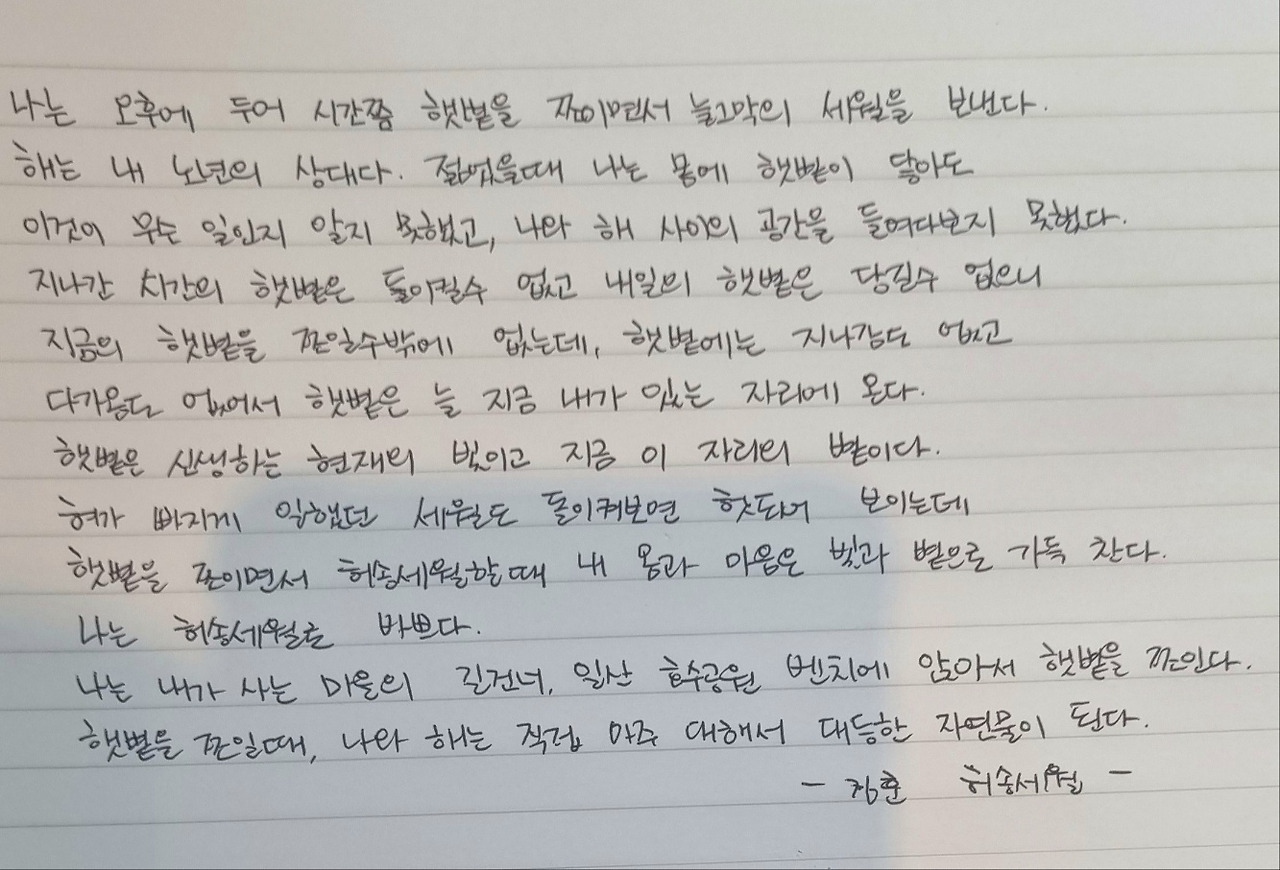 나는 오후에 두어 시간쯤 햇볕을 쪼이면서 늘그막의 세월을 보낸다.
해는 내 노년의 상대다. 젊었을때 나는 몸에 햇볕이 닿아도
이것이 무슨 일인지 알지 못했고, 나와 해 사이의 공간을 들여다보지 못했다.
지나간 시간의 햇볕은 돌이킬수 없고 내일의 햇볕은 당길수 없으니
지금의 햇볕을 쪼일수밖에 없는데, 햇볕에는 지나감도 없고
다가옴도 없어서 햇볕은 늘 지금 내가 있는 자리에 온다.
햇볕은 신생하는 현재의 빛이고 지금 이 자리의 볕이다.
혀가 빠지게 일했던 세월도 돌이켜보면 헛되어 보이는데
햇볕을 쪼이면서 허송세월할때 내 몸과 마음은 빛과 볕으로 가득 찬다.
나는 허송세월로 바쁘다.
나는 내가 사는 마을의 길건너, 일산 호수공원 벤치에 앉아서 햇볕을 쪼인다.
햇볕을 쪼일때, 나와 해는 직접 마주 대해서 대등한 자연물이 된다.
- 김훈 허송세월 -